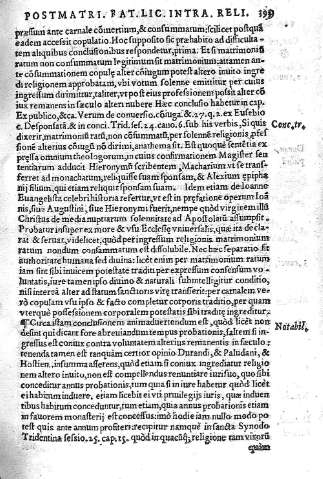 POSTMATRI. RAT. LIC. INTRA. RELI. 399
præsium ante carnale cōsortium, & consummatum: scilicet postquā
ea adem accessit copulatio. Hoc supposito sic præhabito ad difficulta-
tem aliquibus conclusionibus respondetur, prima. Et si matrimoniū
ratum non consummatum legitimum sit matrimonium: attamen an-
te cōsummationem copulę alter cōiugum potest altero inuito ingre
di religionem approbatam, vbi votum solenne emittitur per cuius
ingressum dirimitur, taliter, vt post eius professionem possit alter cō
iux remanens in sæculo alteri nubere Hæc conclusio habetur in cap.
Ex publico, &ca. Verum de conuersio. cōiug. & 27. q. 2. ex Eusebio
c. Desponsatā & in conci. Trid. ses. 24. can. 6. sub his verbis, Si quis
dixerit, matrimoniū ratū, non cōsummatū, per solennē religionis, pfes
sionē alterius cōiugū nō dirimi, anathema sit. Est quoque sentētia ex
pressa omnium theologorum, in cuius confirmationem Magister sen
tentiarum adducit Hieronymū scribentem, Macharium vt se trans-
ferret ad monachatum, reliquisse suam sponsam, & Alexium ephipha
nij filium, qui etiam reliquit sponsam suam. Idem etiam de Ioanne
Euangelista celebri historia refertur, vt est in præfatione operum Ioā
nis, siue Augustini, siue Hieronymi fueris, nempe quòd virginem illū
Christus de media nuptiarum solennitate ad Apostolatū assumpsit.
Probatur insuper ex more & vsu Ecclesię vniuersalis, quę ita decla-
rat & seruat, videlicet, quòd per ingressum religionis matrimonium
ratum nondum consummatum est dissolubile. Nec hæc separatio fit
authoritate humana sed diuina: licèt enim per matrimonium ratum
iam sint sibi inuicem potestate traditi per expressum consensum vo-
luntatis, iure tamen ipso diuino & naturali subintelligitur conditio,
nisi interea alter ad statum sanctioris vitę transierit: per carnalem ve-
rò copulam vsu ipso & facto completur corporis traditio, per quam
vterquè possessionem corporalem potestatis sibi traditę ingreditur.
¶ Circa istam conclusionem animaduertendum est, quòd licèt non
desint qui dicant fore abreuiandum tempus probationis, saltem si in-
gressus est coniux contra voluntatem alterius remanentis in sæculo:
tenenda tamen est tanquam certior opinio Durandi, & Paludani, &
Hostien, in summa asserens, quòd etiam si coniux ingrediatur religio
nem altero inuito, non est compellendus renuntiare iuri suo, quo sibi
conceditur annus probationis, tum quia si in iure habetur quòd licèt
ei habitum induere, etiam licebit ei vti priuilegijs iuris, quæ induen
tibus habitum conceduntur, tum etiam, quia annus probationis etiam
in fauorem monasterij est concessus: imò hodie iam nullo modo po
test quis ante annum profiteri: recipitur namque in sancta Synodo
Tridentina sessio. 25. cap. 15. quòd in quacūq; religione tam virorū
quàm
Conc. tr.
Notabil.